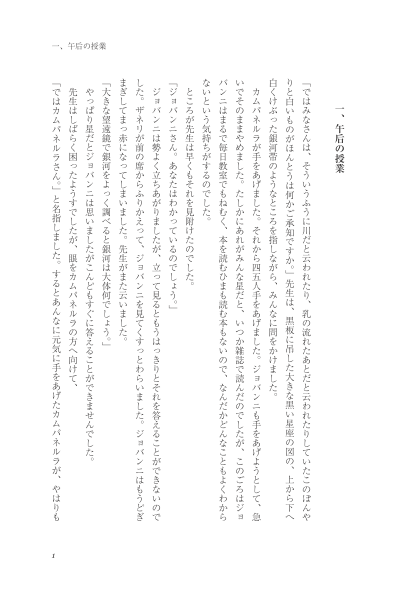 一、午后の授業
一、午后の授業
「ではみなさんは、そういうふうに川だと云われたり、乳の流れたあとだと云われたりしていたこのぼんや
りと白いものがほんとうは何かご承知ですか。」先生は、黒板に吊した大きな黒い星座の図の、上から下へ
白くけぶった銀河帯のようなところを指しながら、みんなに問をかけました。
カムパネルラが手をあげました。それから四五人手をあげました。ジョバンニも手をあげようとして、急
いでそのままやめました。たしかにあれがみんな星だと、いつか雑誌で読んだのでしたが、このごろはジョ
バンニはまるで毎日教室でもねむく、本を読むひまも読む本もないので、なんだかどんなこともよくわから
ないという気持ちがするのでした。
ところが先生は早くもそれを見附けたのでした。
「ジョバンニさん。あなたはわかっているのでしょう。」
ジョバンニは勢よく立ちあがりましたが、立って見るともうはっきりとそれを答えることができないので
した。ザネリが前の席からふりかえって、ジョバンニを見てくすっとわらいました。ジョバンニはもうどぎ
まぎしてまっ赤になってしまいました。先生がまた云いました。
「大きな望遠鏡で銀河をよっく調べると銀河は大体何でしょう。」
やっぱり星だとジョバンニは思いましたがこんどもすぐに答えることができませんでした。
先生はしばらく困ったようすでしたが、眼をカムパネルラの方へ向けて、
「ではカムパネルラさん。」と名指しました。するとあんなに元気に手をあげたカムパネルラが、やはりも
1